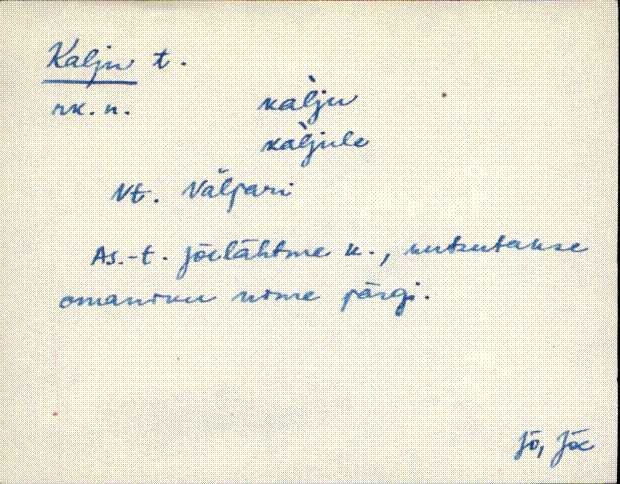 Kalju t.
rk. n. kàlju
kàljule
Vt. Välpari
As.-t. Jõelähtme k., kutsutakse
omaniku nime järgi.
Jõ, Jõe